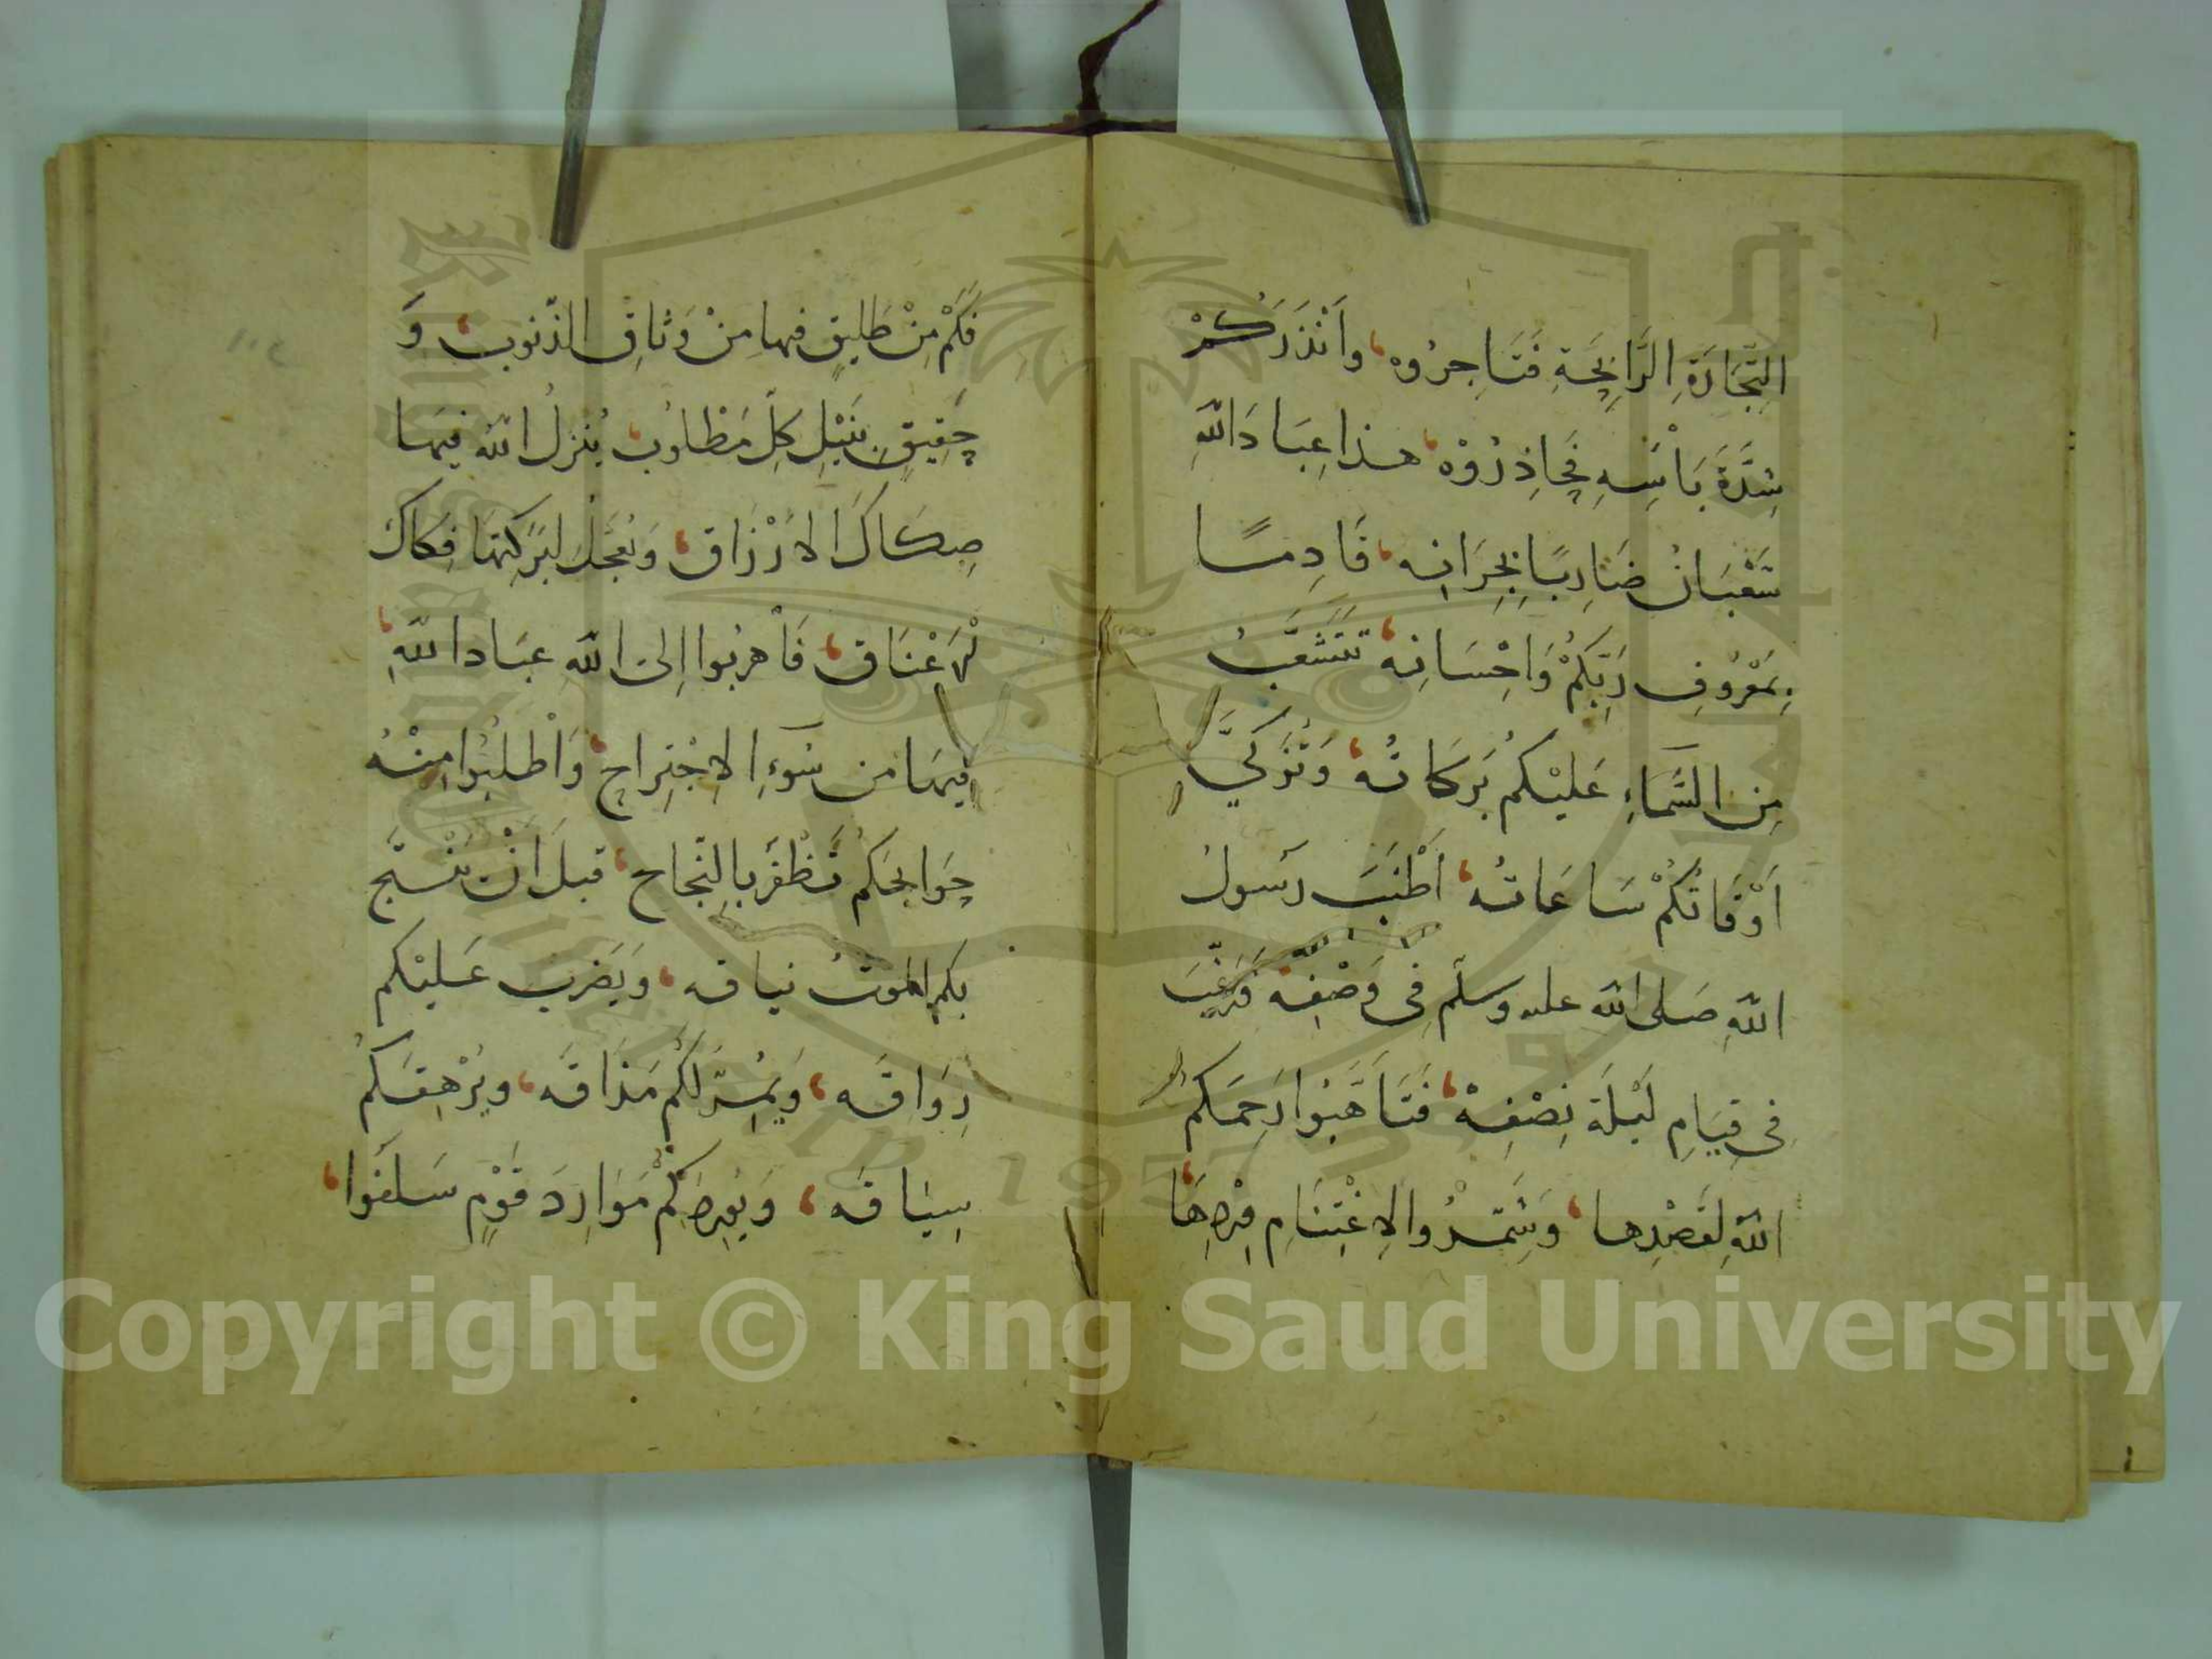 التِّجَارَةِ الرَّابِحَةِ فَتَاجِرُوه، وَاَنْذَرَكُمْ
شِدَّةَ بَأْسِهِ فَحَاذِرُوْه، هذا عِبَادَ اللهِ
شَعْبَانُ ضَارِبًا بِجِرَانِه، قَادِمًا
بِمَعْرُوفِ رَبِّكُمْ وَاِحْسَانِه، تَتَشَعَّبُ
مِنَ السَّمَاءِ عَلَيْكُمْ بَرَكَاتُه، وَتُزَكِّي
اَوْقَاتَكُمْ سَاعَاتُه، اَطْنَبَ رسُولُ
اللهِ صَلى الله عليه وسلم فِى وَصْفِه، فَرَغَّبَ
فِى قِيَامِ لَيْلَةِ نِصْفِه، فَتَأَهَّبُوا رَحِمَكُمُ
اللهُ لِقَصْدِها، وَشَمِّرُوا لاِغْتِنَامِ
فَكَمْ مِنْ طَلِيقٍ فيها مِنْ وَثَاقِ الذّنوب، وَ
حَقِيقٍ بِنَيْلِ كلِّ مَطْلُوب، يُنْزِلُ الله فِيهَا
صِكَاكَ الاَرْزَاق، وَيُعَجِّلُ لِبَرَكَتِهَا فِكَاكَ
الاَعْنَاق، فَاْهربُوا اِلى اللهِ عبَاد اللهِ،
فِيهَا من سُوءِ الاِجْتِرَاحِ، وَاْطلُبُوا مِنْهُ
حَوَايجَكُمْ تَظْفَرُ بِالنّجاح، قبلَ اَنْ
بكم الموتُ نياقه، وَيَضْرِبَ عَليْكم
رِوَاقَه، وَيُمِرَّ لَكُمْ مَذَاقَه، ويُرْهِقَكُمْ
سِيَاقَه، مَوَارِدَ قَوْمٍ سَلَفُوا،
Copyright © King Saud University
1957